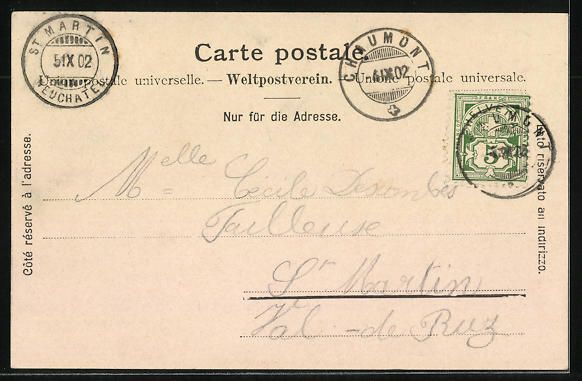 ST MARTIN
5 IX 02
NEUCHATEL
Carte postale
CHAUMONT
4 IX 02
Union postale universelle. — Weltpostverein. — Unione postale universale.
Nur für die Adresse.
Côté réservé à l'adresse.
Lato riservato all indirizzo.
CHAUMONT
5
Melle Cecile
Tailleuse
St Martin
Val-de Ruz